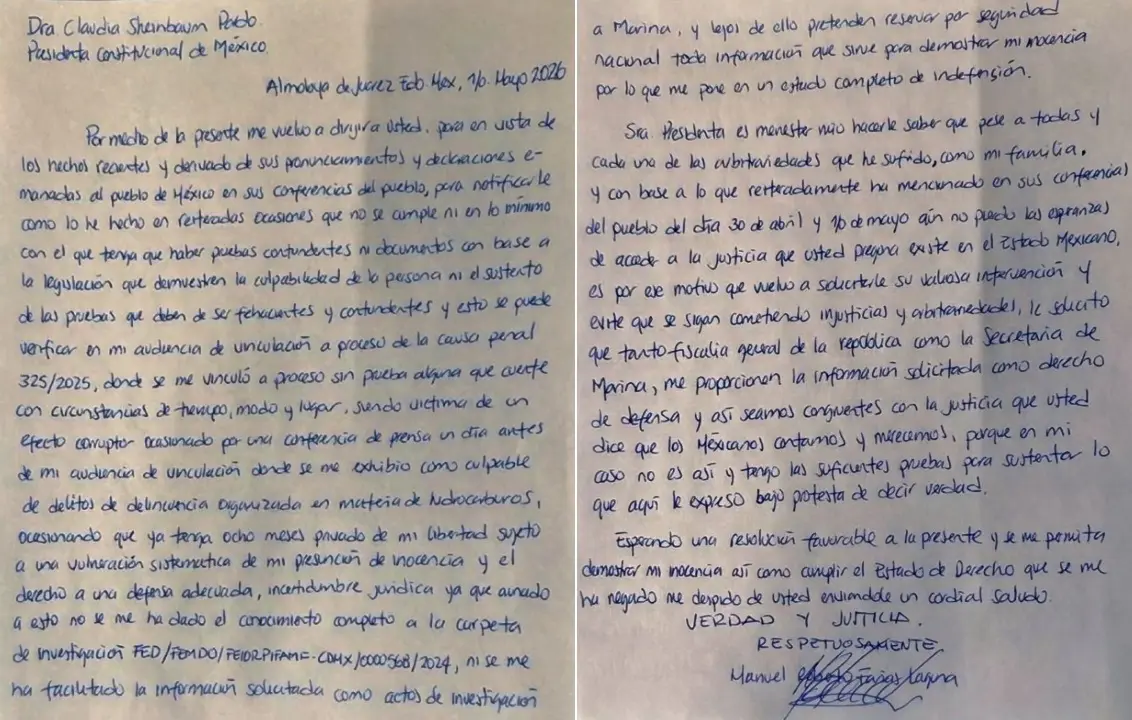 Dra. Claudia Sheinbaum Pardo.
Presidenta Constitucional de México
Almoloya de Juárez Edo. Mex, 16. Mayo 2026
Por medio de la presente me vuelvo a dirigir a Usted, para en vista de
los hechos recientes y derivado de sus pronunciamientos y declaraciones e-
manadas al pueblo de México en sus conferencias del pueblo, para notificarle
como lo he hecho en reiteradas ocasiones que no se cumple ni en lo mínimo
con el que tenga que haber puebas contundentes ni documentos con base a
la legislación que demuestren la culpabilidad de la persona ni el sustento
de las pruebas que deben de ser fehacientes y contundentes y esto se puede
verificar en mi audiencia de vinculación a proceso de la causa penal
325/2025, donde se me vinculó a proceso sin prueba alguna que cuente
con circunstancias de tiempo, modo y lugar, siendo victima de un
efecto corruptor ocasionado por una conferencia de prensa un día antes
de mi audiencia de vinculación donde se me exhibio como culpable
de delitos de delincuencia organizada en materia de hidrocarburos,
ocasionando que ya tenga ocho meses privado de mi libertad sujeto
a una vulneración sistematica de mi presunción de inocencia y el
derecho a una defensa adecuada, incertidumbre jurídica ya que aunado
a esto no se me ha dado el conocimiento completo a la carpeta
de investigación FED/FEMDO/FEIORPIFAM-CDMX/0000568/2024, ni se me
ha facilitado la información solicitada como actos de investigación
a Marina, y lejos de ello pretenden reservar por seguridad
nacional toda información que sirve para demostrar mi inocencia
por lo que me pone en un estado completo de indefensión.
Sra. Presidenta es menester mio hacerle saber que pese a todas y
cada una de las arbitrariedades que he sufrido, como mi familia,
y con base a lo que reiteradamente ha mencionado en sus conferencias
del pueblo del día 30 de abril y 16 de mayo aún no pierdo las esperanzas
de acceder a la justicia que usted pregona existe en el Estado Mexicano,
es por ese motivo que vuelvo a solicitarle su valiosa intervención y
evite que se sigan cometiendo injusticias y arbitrariedades, le solicito
que tanto fiscalia general de la republica como la Secretaria de
Marina, me proporcionen la información solicitada como derecho
de defensa y así seamos congruentes con la justicia que usted
dice que los Mexicanos contamos y merecemos, porque en mi
caso no es así y tengo las suficientes pruebas para sustentar lo
que aquí le expreso bajo protesta de decir verdad.
Esperando una resolución favorable a la presente y se me permita
demostrar mi inocencia así como cumplir el Estado de Derecho que se me
ha negado me despido de usted enviandole un cordial saludo.
VERDAD Y JUSTICIA.
RESPETUOSAMENTE
Manuel Roberto Farías Laguna